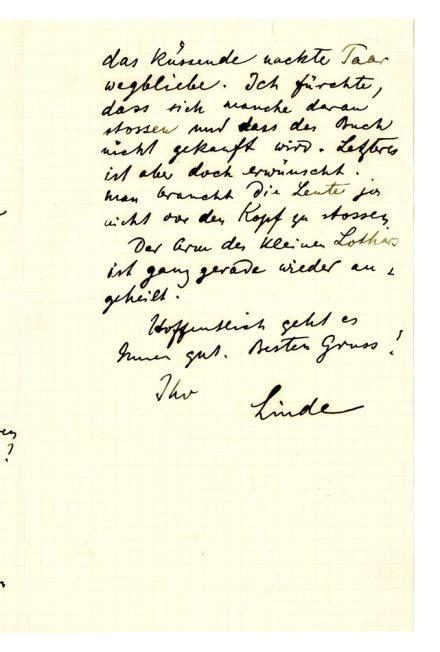 das küssende nackte Paar
wegbliebe. Ich fürchte,
dass sich manche daran
stossen und dass das Buch
nicht gekauft wird. Letzteres
ist aber doch erwünscht.
man braucht die Leute ja
nicht vor den Kopf zu stossen
Der Arm des kleinen Lothars
ist ganz gerade wieder an-
geheilt.
Hoffentlich geht es
Ihnen gut. Besten Gruss!
Ihr
Linde
?